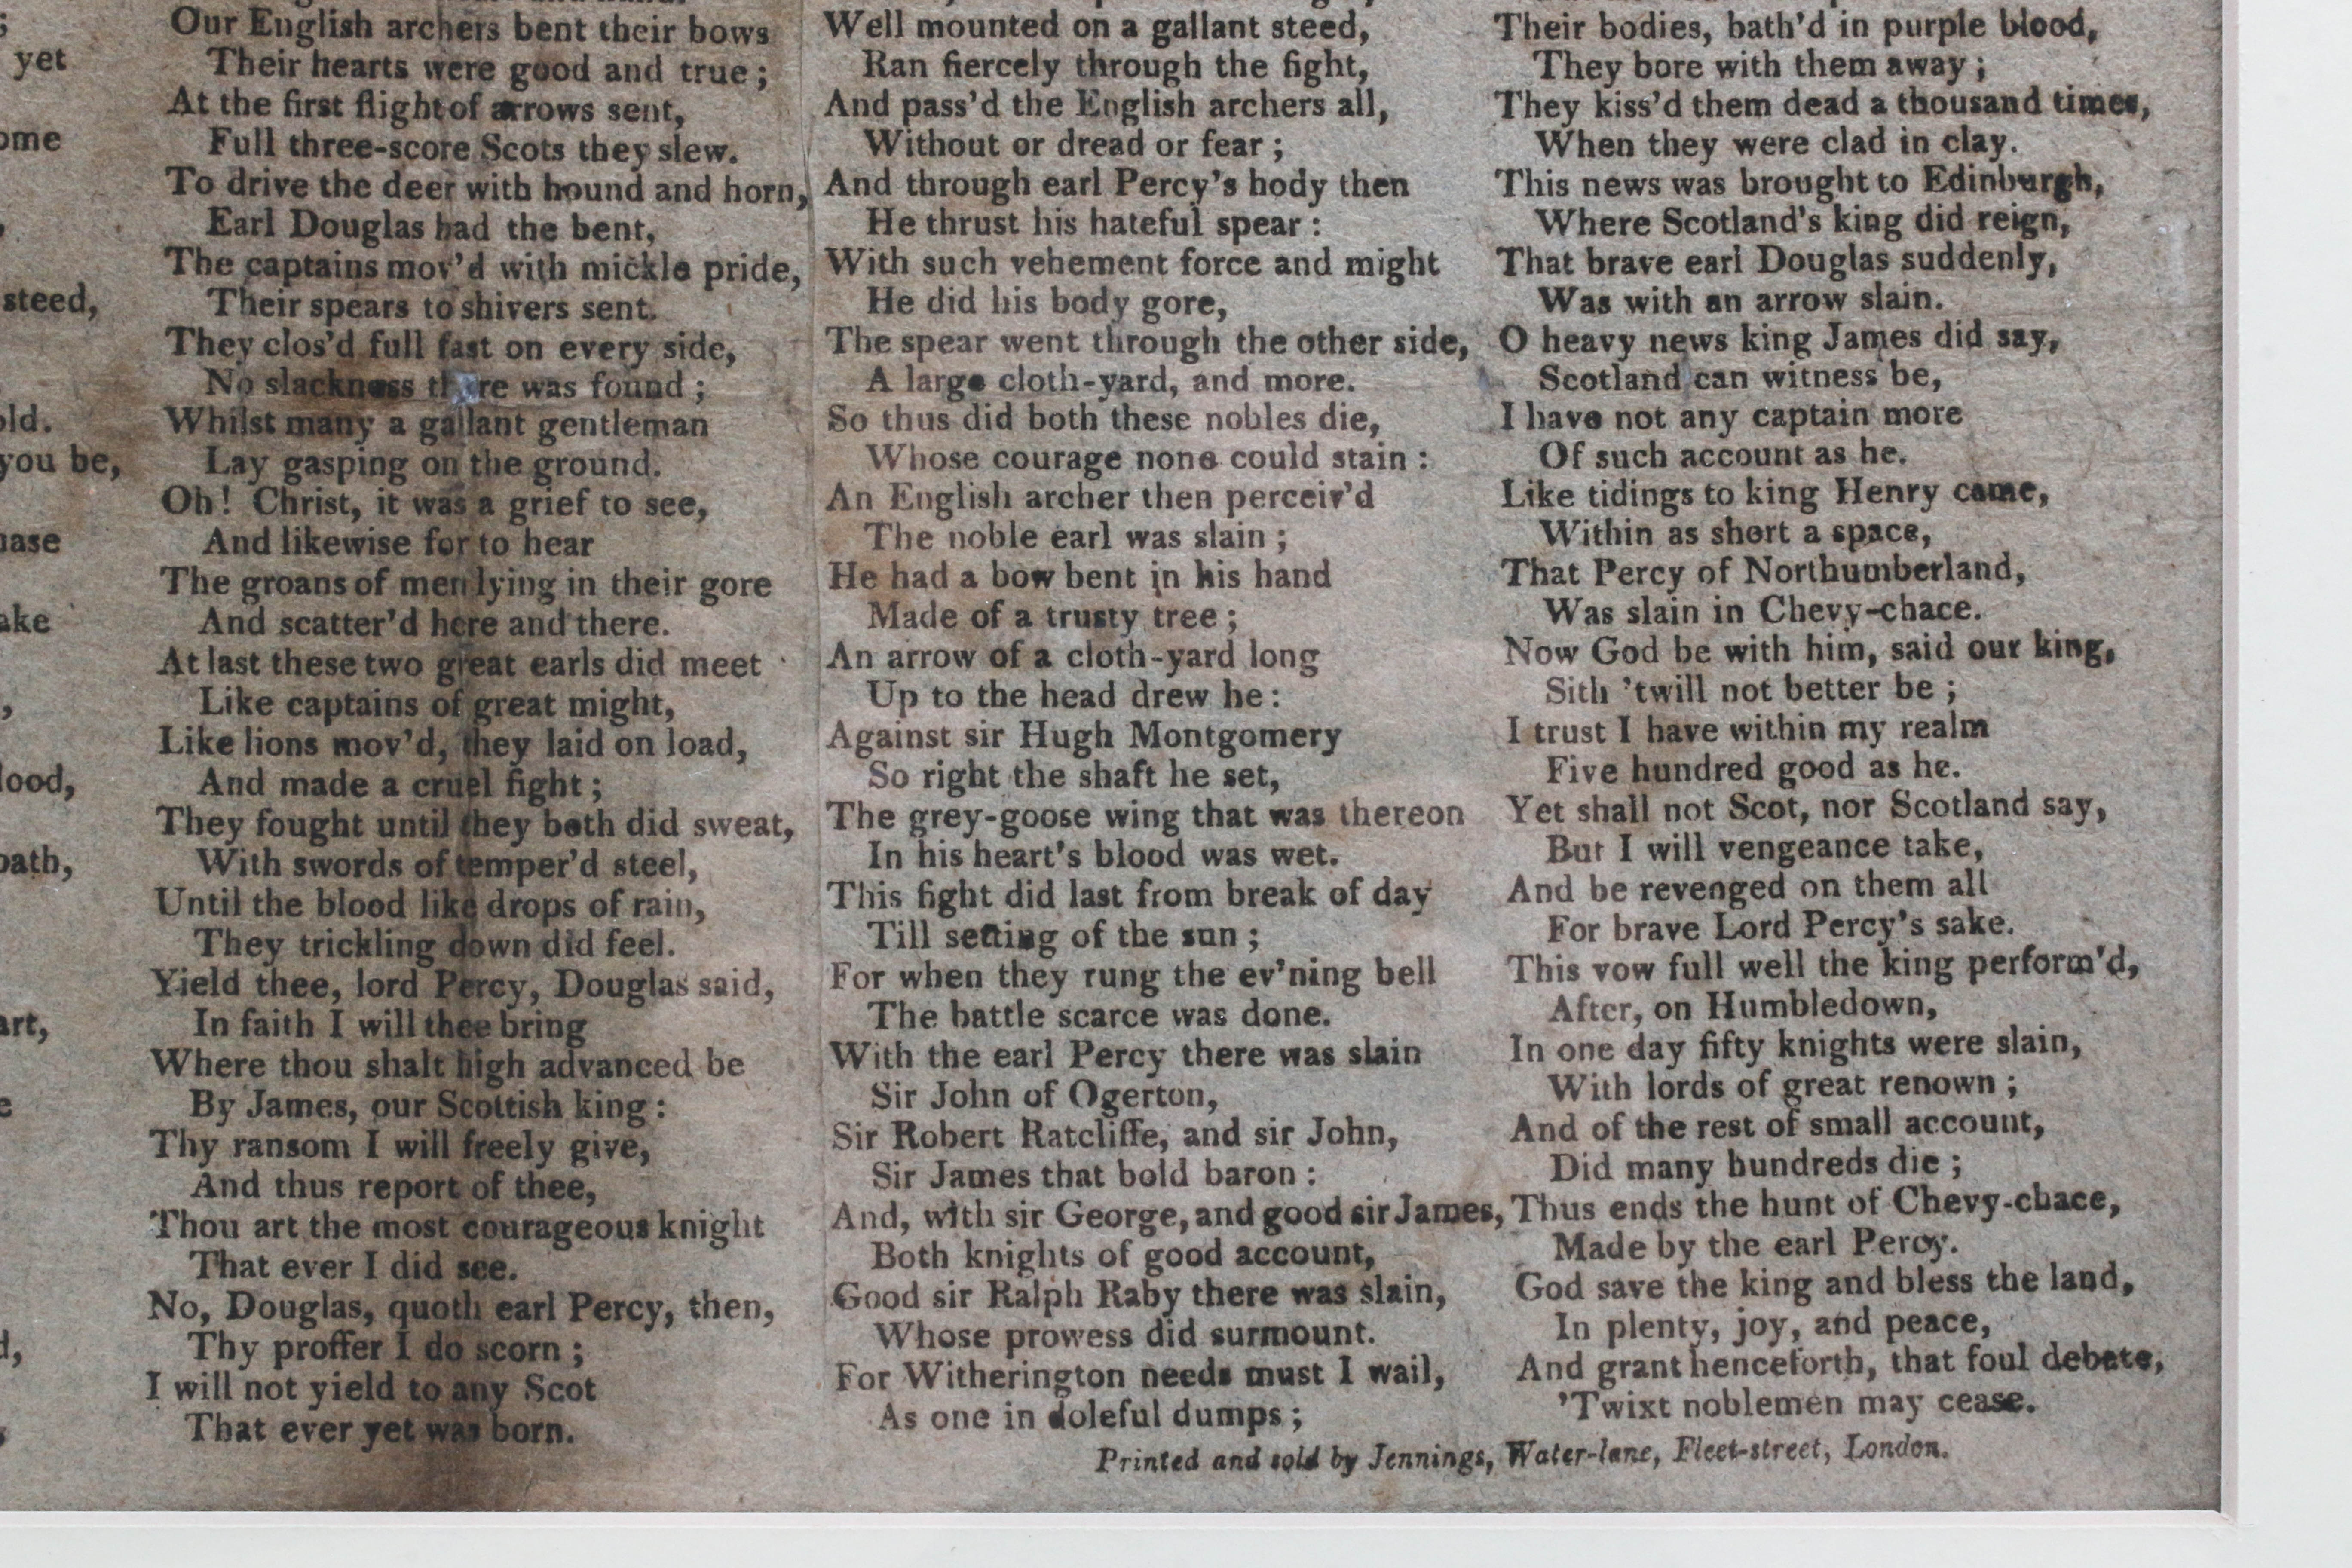 yet
ome
steed,
old.
you be,
ake
lood,
path,
art,
Our English archers bent their bows
Their hearts were good and true;
At the first flight of arrows sent,
Full three-score Scots they slew.
To drive the deer with hound and horn,
Earl Douglas had the bent,
The captains mov'd with mickle pride,
Their spears to shivers sent.
They clos'd full fast on every side,
No slackness there was found;
Whilst many a gallant gentleman
Lay gasping on the ground.
Oh! Christ, it was a grief to see,
And likewise for to hear
The groans of men lying in their gore
And scatter'd here and there.
At last these two great earls did meet
Like captains of great might,
Like lions mov'd, they laid on load,
And made a cruel fight;
They fought until they both did sweat,
With swords of temper'd steel,
Until the blood like drops of rain,
They trickling down did feel.
Yield thee, lord Percy, Douglas said,
In faith I will thee bring
Where thou shalt high advanced be
By James, our Scottish king:
Thy ransom I will freely give,
And thus report of thee,
Thou art the most courageous knight
That ever I did see.
No, Douglas, quoth earl Percy, then,
Thy proffer I do scorn;
I will not yield to any Scot
That ever yet was born.
Well mounted on a gallant steed,
Ran fiercely through the fight,
And pass'd the English archers all,
Without or dread or fear;
And through earl Percy's hody then
He thrust his hateful spear:
With such vehement force and might
He did his body gore,
The spear went through the other side,
A large cloth-yard, and more.
So thus did both these nobles die,
Whose courage none could stain:
An English archer then perceiv'd
The noble earl was slain;
He had a bow bent in his hand
Made of a trusty tree;
An arrow of a cloth-yard long
Up to the head drew he:
Against sir Hugh Montgomery
So right the shaft he set,
The grey-goose wing that was thereon
In his heart's blood was wet.
This fight did last from break of day
Till setting of the sun;
For when they rung the ev'ning bell
The battle scarce was done.
With the earl Percy there was slain
Sir John of Ogerton,
Sir Robert Ratcliffe, and sir John,
Sir James that bold baron:
And, with sir George, and good sir James,
Both knights of good account,
Good sir Ralph Raby there was slain,
Whose prowess did surmount.
For Witherington needs must I wail,
As one in doleful dumps;
Their bodies, bath'd in purple blood,
They bore with them away;
They kiss'd them dead a thousand times,
When they were clad in clay.
This news was brought to Edinburgh,
Where Scotland's king did reign,
That brave earl Douglas suddenly,
Was with an arrow slain.
O heavy news king James did say,
Scotland can witness be,
I have not any captain more
Of such account as he.
Like tidings to king Henry came,
Within as short a space,
That Percy of Northumberland,
Was slain in Chevy-chace.
Now God be with him, said our king,
Sith 'twill not better be;
I trust I have within my realm
Five hundred good as he.
Yet shall not Scot, nor Scotland say,
But I will vengeance take,
And be revenged on them all
For brave Lord Percy's sake.
This vow full well the king perform'd,
After, on Humbledown,
In one day fifty knights were slain,
With lords of great renown;
And of the rest of small account,
Did many hundreds die;
Thus ends the hunt of Chevy-chace,
Made by the earl Percy.
God save the king and bless the land,
In plenty, joy, and peace,
And grant henceforth, that foul debate,
'Twixt noblemen may cease.
Printed and sold by Jennings, Water-lane, Fleet-street, London.